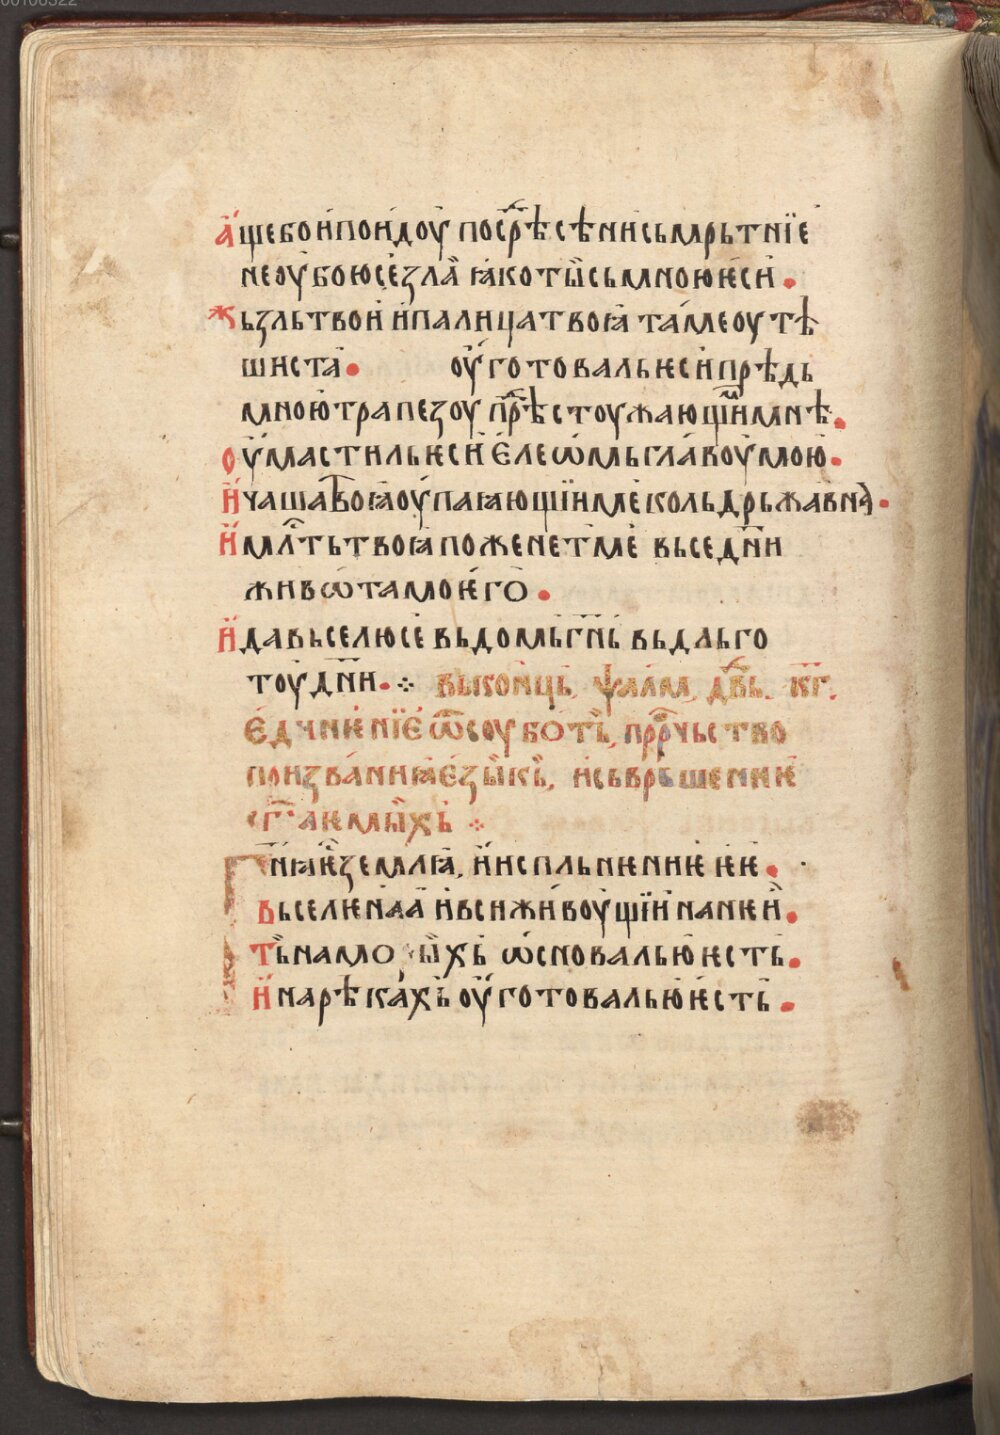 00100322
А҆ще бо и҆ поидоу҆ посрⷣѣ сѣни сьмрьтнїе
не оу҆бою се зла ꙗ҆ко ты̀ сь мною ѥ҆си •
Жьзль твои и҆ палица твоꙗ҆ та́ ме оутѣ
шиста • оу҆готоваль ѥси прѣдь
мною трапезоу прⷣѣ стоужающїимь мнѣ •
Оу҆мастиль ѥси є҆леѡ҆мь гла́воу мою •
И҆ чаша твоꙗ҆ оу҆паꙗющїи ме коль дрьжавна •
И҆ млⷭ҇ть твоꙗ҆ поженет ме вьсе дн҃и
живѡта моѥ҆го •
И҆ да вьселю се вь домь гн҃ь вь дльго
тоу дн҃и • вь коньць, ѱалам, дв҃дь. кг҃.
Є҆дчиѥнїе ѿ соуботь, прⷪ҇рчьство
по изваниꙗ҆ є҆зы̀кь, и сьврьшениѥ
Гн҃ꙗ ѥ҆ земла, и҆ испльнѥниѥ ѥ҆ѥ •
Вьселѥнаа и҆ вси жи́воу҆щїи на нѥи •
Ть на мо ы̀хь ѡ҆сноваль ю ѥ҆сть •
И҆ на рѣка́хь оу҆готоваль ю ѥ҆сть •